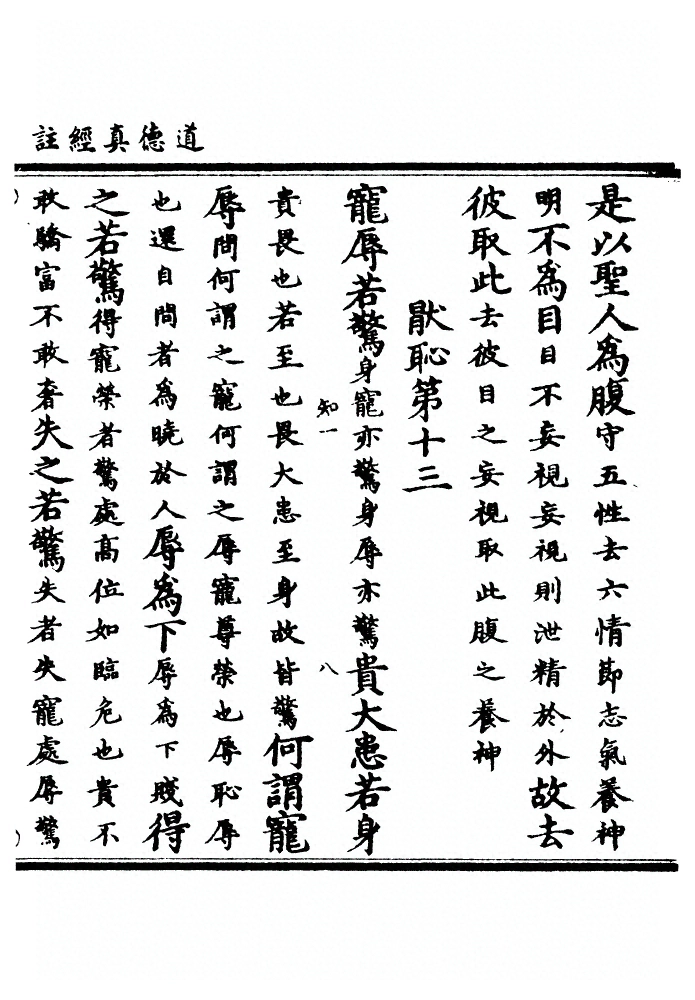 道德真經註
是以聖人爲腹守五性去六情節志氣養神
明不爲目目不妄視妄視則泄精於外故去
彼取此去彼目之妄視取此腹之養神
猒恥第十三
寵辱若驚身寵亦驚身辱亦驚貴大患若身
知一
八
貴畏也若至也畏大患至身故皆驚何謂寵
辱問何謂之寵何謂之辱寵尊榮也辱恥辱
也還自問者爲曉於人辱爲下辱爲下賤得
之若驚得寵榮者驚處高位如臨危也貴不
敢驕富不敢奢失之若驚失者失寵處辱驚